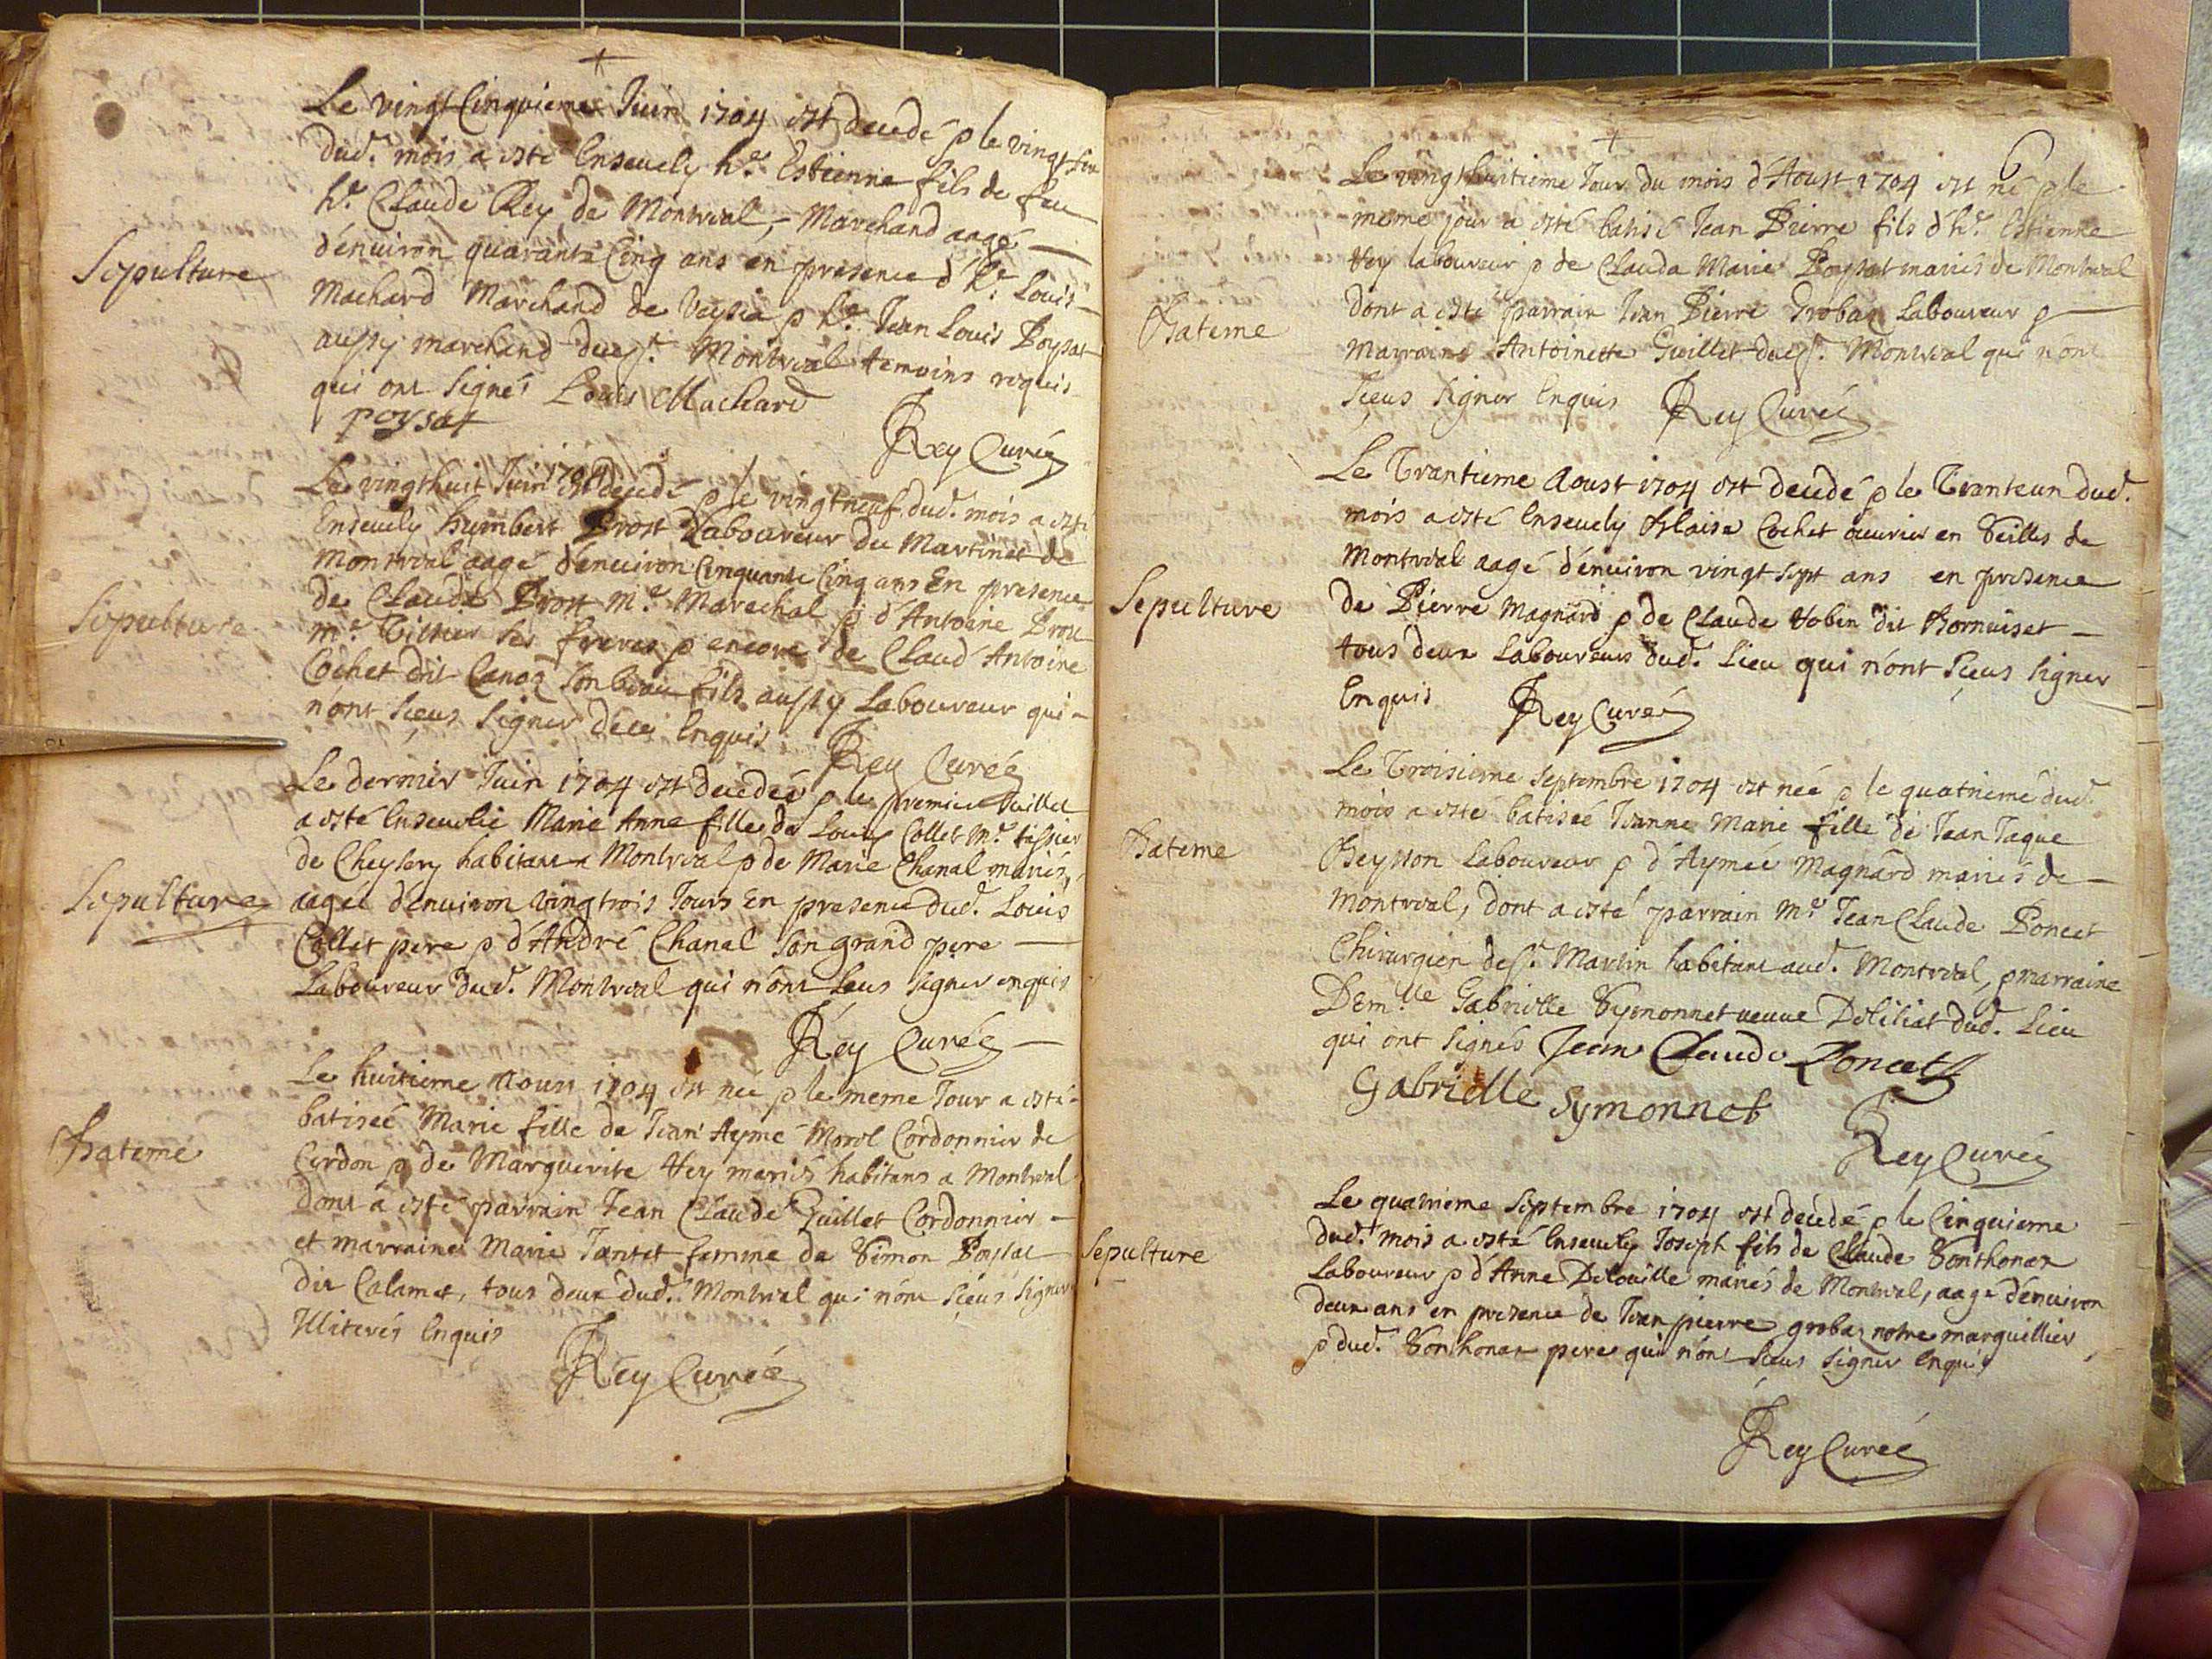 Le vingt Cinquieme Juin 1704 est decedé & le vingt six
dud. mois a esté Ensevely h.e Estienne fils de feu
h.e Claude Rey de Montreal, Marchand aagé
Sepulture
d'environ quarante Cinq ans en presence d'h.e Louis
Machard Marchand de Veysia & h.e Jean Louis Poysat
aussy marchand dud. Montreal temoins requis
qui ont signés Louis Machard
poysat
Rey Curé
Le vingthuit Juin 1704 est decedé & le vingt neuf dud. mois a esté
Ensevely humbert Prost Laboureur du Martinet de
Montreal aagé d'environ Cinquante Cinq ans En presence
Sepulture
de Claude Prost m.e Marechal & d'Antoine Prost
m.e Tissier ses freres & encore de Claud' Antoine
Cochet dit Canoz son beau fils aussy Laboureur qui
n'ont sçeus signer de ce Enquis
Rey Curé
Le dernier Juin 1704 est decedeé & le premier Juillet
a esté Ensevelie Marie Anne fille de Louis Collet m.e tissier
de Cheysery habitant a Montreal & de Marie Chanal mariés,
Sepulture
aagée d'environ vingtrois Jours En presence dud. Louis
Collet pere & d'André Chanal son grand pere
Laboureur dud. Montreal qui n'ont sceus signer enquis
Rey Curé
Le huitieme Aoust 1704 est née & le meme Jour a esté
batiseé Marie fille de Jean Aymé Morel Cordonnier de
Bateme
Cerdon & de Marguerite Hey mariés habitans a Montreal
dont a esté parrain Jean Claude Guillet Cordonnier
et marraine Marie Jantet femme de Simon Poysat
dit Calamet, tous deux dud. Montreal qui n'ont sçeus signer
Illiterés Enquis
Rey Curé
Le vingthuitieme Jour du mois d'Aoust 1704 est né & le
meme jour a esté batisé Jean Pierre fils d'h.e Estienne
Hey laboureur & de Clauda Marie Poysat mariés de Montreal
Bateme
dont a esté parrain Jean Pierre Grobaz Laboureur &
marraine Antoinette Guillet dud. Montreal qui n'ont
sçeus signer Enquis Rey Curé
Le Trantieme Aoust 1704 est decedé & le Tranteun dud.
mois a esté Ensevely Blaise Cochet ouvrier en Toilles de
Montreal aagé d'environ vingt sept ans en presence
Sepulture
de Pierre Magnard & de Claude Hobin dit Bornuiset
tous deux Laboureurs dud. Lieu qui n'ont sçeus signer
Enquis Rey Curé
Le Troisieme Septembre 1704 est née & le quatrieme dud.
mois a esté batiseé Jeanne Marie fille de Jean Jaque
Bateme
Beysson Laboureur & d'Aymeé Magnard mariés de
Montreal, dont a esté parrain M.e Jean Claude Poncet
Chirurgien de S.t Martin habitant aud. Montreal, & marraine
Dem.lle Gabrielle Symonnet veuve Deliliat dud. Lieu
qui ont signés Jean Claude Poncet
Gabrielle Symonnet
Rey Curé
Le quatrieme Septembre 1704 est decedé & le Cinquieme
Sepulture
dud. mois a esté Ensevely Joseph fils de Claude Tonthonaz
Laboureur & d'Anne Delouille mariés de Montreal, aagé d'environ
deux ans en presence de Jean pierre grobaz notre marguillier
& dud. Tonthonaz pere qui n'ont sceus signer Enquis
Rey Curé